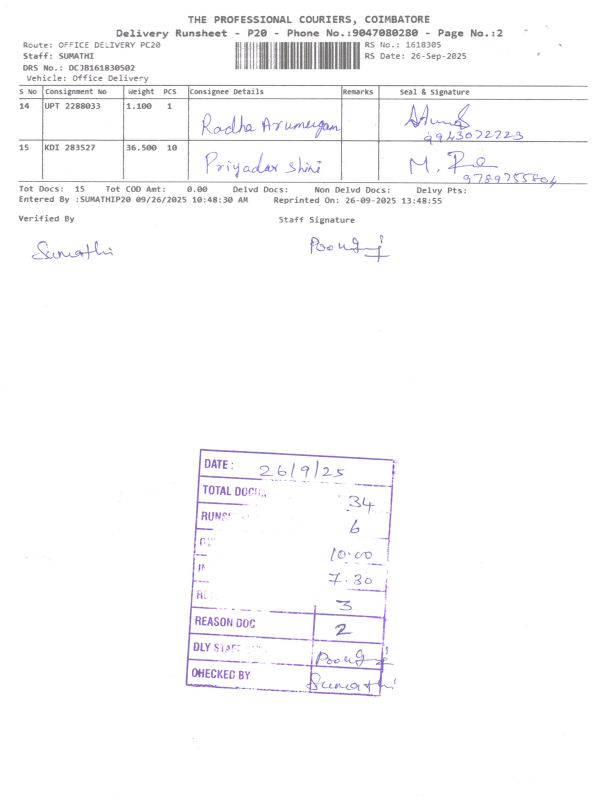 THE PROFESSIONAL COURIERS, COIMBATORE
Delivery Runsheet - P20 - Phone No.:9047080280 - Page No.:2
Route: OFFICE DELIVERY PC20
RS No.: 1618305
Staff: SUMATHI
RS Date: 26-Sep-2025
DRS No.: DCJB161830502
Vehicle: Office Delivery
S No Consignment No Weight PCS Consignee Details Remarks Seal & Signature
14 UPT 2288033 1.100 1 Radha Arumugam
9943072723
15 KDI 283527 36.500 10 Priyadarshini M.
9789755804
Tot Docs: 15 Tot COD Amt: 0.00 Delvd Docs: Non Delvd Docs: Delvy Pts:
Entered By :SUMATHIP20 09/26/2025 10:48:30 AM Reprinted On: 26-09-2025 13:48:55
Verified By Staff Signature
Sumathi
DATE: 26/9/25
TOTAL 34
6
10.00
7.30
3
REASON DOC 2
DLY STAFF
CHECKED BY Sumathi